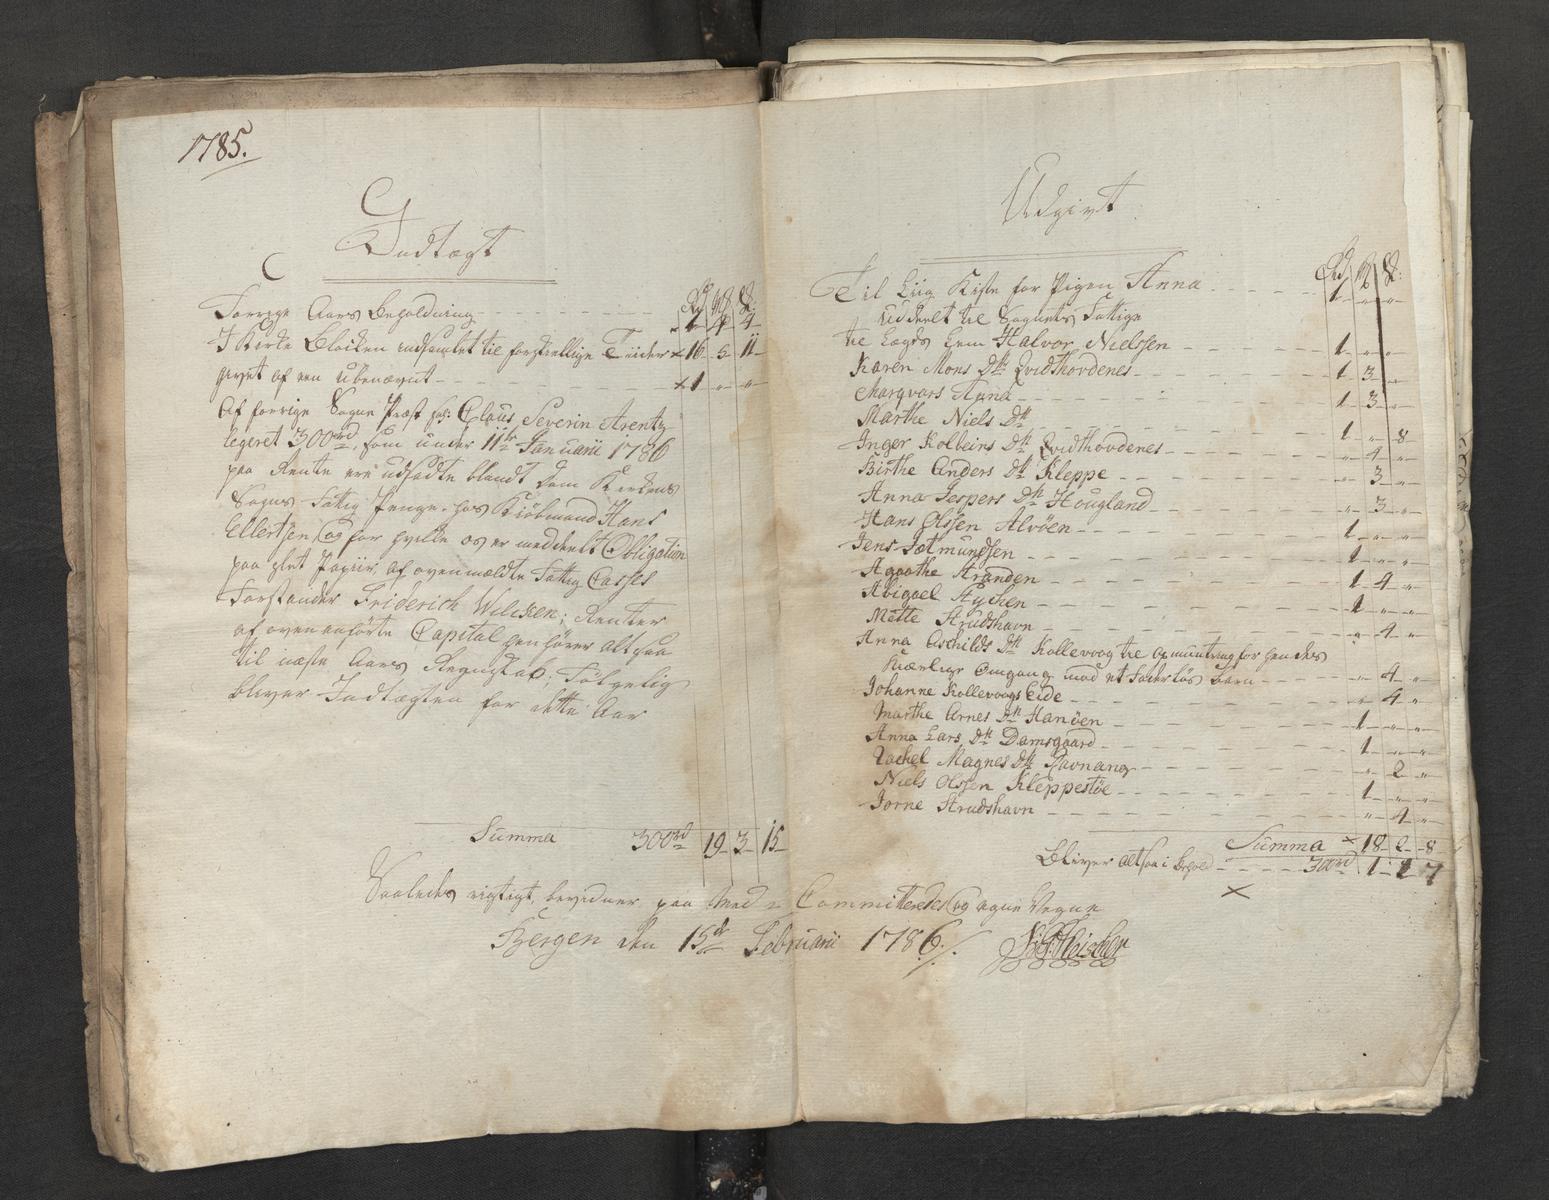 1785.
Indtægt
Rd. M. S.
Forrige Aars Beholdning 1 4 4
I Kirke Blocken indsamlet til forskiellige Tiider × 16 5 11
givet af een ubenævnt × 1 " "
Af forrige Sogne Præst hr: Claus Severin Arentz
legeret 300rd, som under 11te Januarii 1786
paa Rente ere udsadte blandt dem Kirkens
Sogns Fattig Penge, hos Kiøbmand Hans
Ellertsen, og for hvilke os er meddeelt Obligation
paa slet Papiir af ovenmældte Fattig Casses
Forstander Friderich Wilcken; Renter
af ovenanførte Capital henhører altsaa
til næste Aars Regnskab; Følgelig
bliver Indtægten for dette Aar
Summa 300rd 19 3 15
Udgivt
Rd. M. S.
Til Liig Kiste for Pigen Anna 1 " "
Uddeelt til Sognets Fattige
til Lægds Lem Halvor Nielssen 1 " "
Karen Mons Dtr Qvidthovdenes 1 3 "
Marqvars Anna 1 3 "
Marthe Niels Dtr
Inger Kolbeins Dtr Qvidthovdenes 1 " 8
Birthe Anders Dtr Kleppe " 4 "
Anna Jespers Dtr Hougland " 3 "
Hans Olssen Alvøen " 3 "
Jens Jetmundsen 1 " "
Agathe Stranden 1 " "
Abigael Hycken 1 4 "
Mette Strudshavn 1 " "
Anna Aschilds Dtr Kollevaag til opmuntring for hendes " 4 "
kierlige Omgang med et faderløs barn " 4 "
Johanne Kollevaags Eide " 4 "
Marthe Arnes Dtr Hanøen 1 " "
Anna Lars Dtr Damsgaard 1 " "
Rachel Magnes Dtr Ravnang " 2 "
Niels Olssen Kleppestøe 1 " "
Jorne Strudshavn " 4 "
Summa × 18 2 8
Bliver altsaa i behold 300rd 1 1 7
×
Saaledes rigtigt, bevidner paa Med Committeredes og egne Vegne
Bergen den 15de Februarii 1786. Fleischer